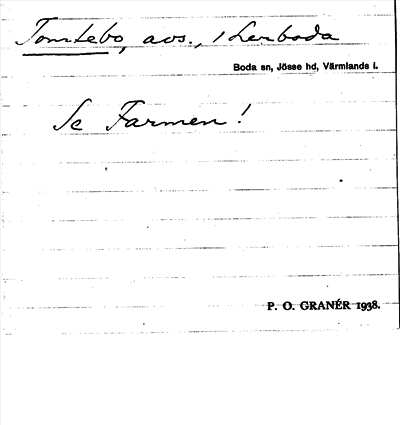 Tomtebo, avs., i Lerboda
Boda sn, Jösse hd, Värmlands l.
Se Farmen!
P. O. GRANÉR 1938.